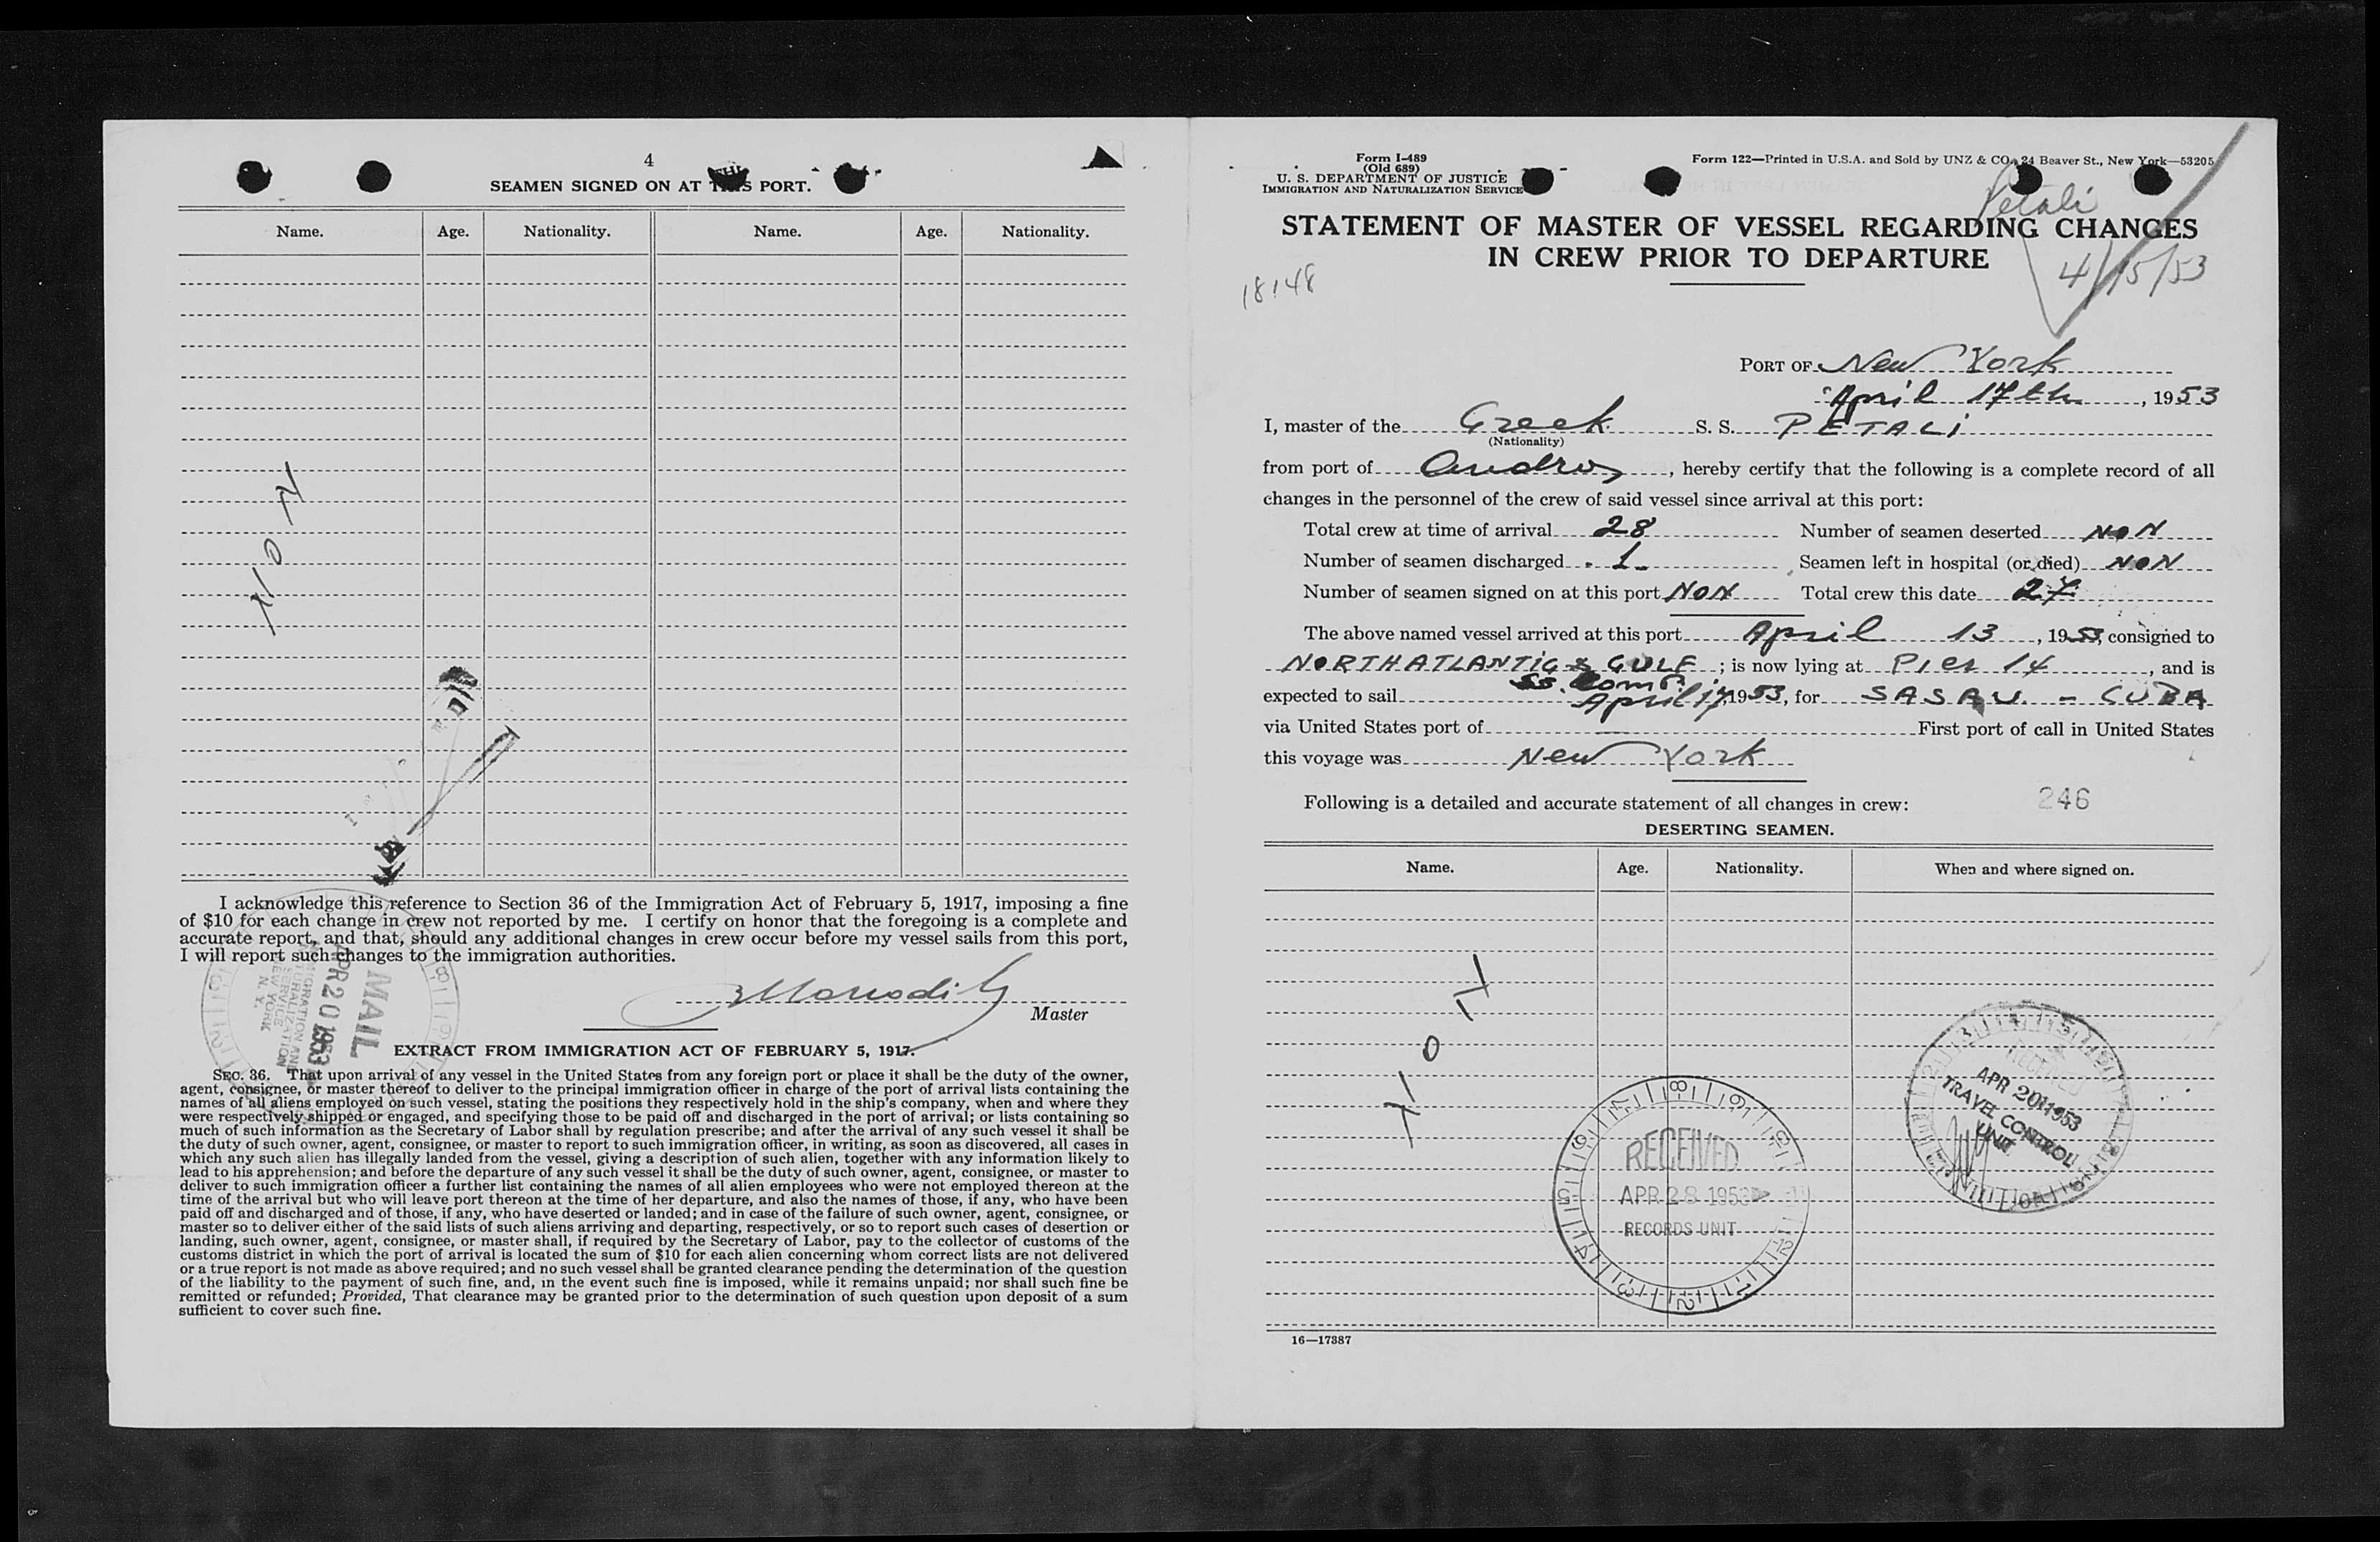 4
SEAMEN SIGNED ON AT THIS PORT.
Name. Age. Nationality. Name. Age. Nationality.
NON
I acknowledge this reference to Section 36 of the Immigration Act of February 5, 1917, imposing a fine
of $10 for each change in crew not reported by me. I certify on honor that the foregoing is a complete and
accurate report, and that, should any additional changes in crew occur before my vessel sails from this port,
I will report such changes to the immigration authorities.
Master
MAIL
APR 20 1953
IMMIGRATION AND
NATURALIZATION
SERVICE
NEW YORK
N. Y.
EXTRACT FROM IMMIGRATION ACT OF FEBRUARY 5, 1917.
SEC. 36. That upon arrival of any vessel in the United States from any foreign port or place it shall be the duty of the owner,
agent, consignee, or master thereof to deliver to the principal immigration officer in charge of the port of arrival lists containing the
names of all aliens employed on such vessel, stating the positions they respectively hold in the ship's company, when and where they
were respectively shipped or engaged, and specifying those to be paid off and discharged in the port of arrival; or lists containing so
much of such information as the Secretary of Labor shall by regulation prescribe; and after the arrival of any such vessel it shall be
the duty of such owner, agent, consignee, or master to report to such immigration officer, in writing, as soon as discovered, all cases in
which any such alien has illegally landed from the vessel, giving a description of such alien, together with any information likely to
lead to his apprehension; and before the departure of any such vessel it shall be the duty of such owner, agent, consignee, or master to
deliver to such immigration officer a further list containing the names of all alien employees who were not employed thereon at the
time of the arrival but who will leave port thereon at the time of her departure, and also the names of those, if any, who have been
paid off and discharged and of those, if any, who have deserted or landed; and in case of the failure of such owner, agent, consignee, or
master so to deliver either of the said lists of such aliens arriving and departing, respectively, or so to report such cases of desertion or
landing, such owner, agent, consignee, or master shall, if required by the Secretary of Labor, pay to the collector of customs of the
customs district in which the port of arrival is located the sum of $10 for each alien concerning whom correct lists are not delivered
or a true report is not made as above required; and no such vessel shall be granted clearance pending the determination of the question
of the liability to the payment of such fine, and, in the event such fine is imposed, while it remains unpaid; nor shall such fine be
remitted or refunded; Provided, That clearance may be granted prior to the determination of such question upon deposit of a sum
sufficient to cover such fine.
Form I-489
(Old 689)
U. S. DEPARTMENT OF JUSTICE
IMMIGRATION AND NATURALIZATION SERVICE
Form 122—Printed in U.S.A. and Sold by UNZ & CO., 24 Beaver St., New York—53205
Petali
STATEMENT OF MASTER OF VESSEL REGARDING CHANGES
IN CREW PRIOR TO DEPARTURE
4/15/53
18148
PORT OF New York
April 17th, 1953
I, master of the Greek S. S. PETALI
(Nationality)
from port of Andros, hereby certify that the following is a complete record of all
changes in the personnel of the crew of said vessel since arrival at this port:
Total crew at time of arrival 28 Number of seamen deserted NON
Number of seamen discharged 1 Seamen left in hospital (or died) NON
Number of seamen signed on at this port NON Total crew this date 27
The above named vessel arrived at this port April 13, 1953, consigned to
NORTH ATLANTIC & GULF; is now lying at Pier 14, and is
SS. Comp.
expected to sail April 17, 1953, for SASAU. - CUBA
via United States port of First port of call in United States
this voyage was New York
Following is a detailed and accurate statement of all changes in crew:
246
DESERTING SEAMEN.
Name. Age. Nationality. When and where signed on.
NON
RECEIVED
APR 20 1953
TRAVEL CONTROL
UNIT
RECEIVED
APR 28 1953
RECORDS UNIT
16—17387